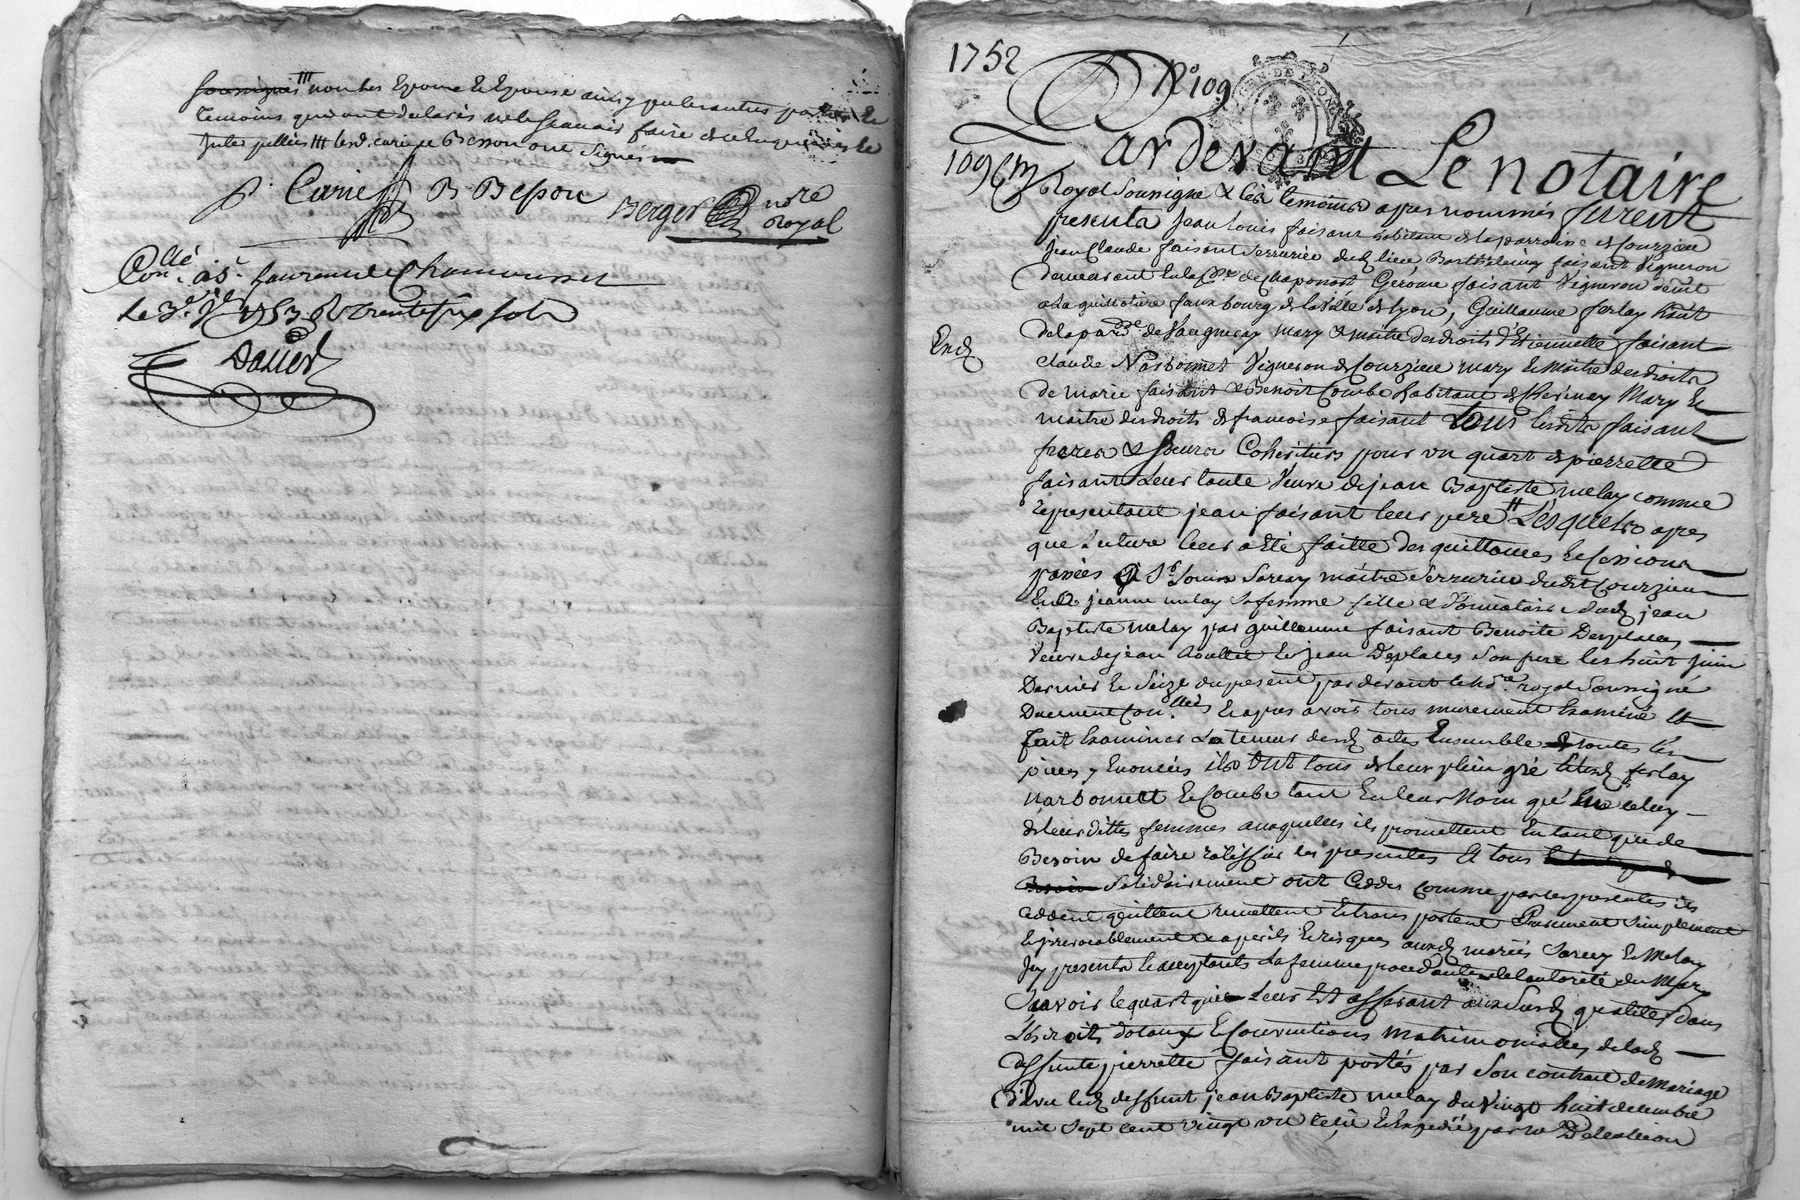 soussignés /// non les Epoux & Epouse ainsy
temoins qui ont declarés ne le scavoir faire de ce Enquis
/// led. curé & Besson ont signés
Carie B. Besson Berger nore
Royal
Collé
Con. à St. Laurent de Chamousset
le 3e 1753 Rt trente six sols
Dallier
1752
No 109
109 Pardevant Le notaire
Royol soussigné & les temoins apres nommés furent
presents Jean Louis faisant habitant de la parroisse de Courzieu
Jean Claude faisant serrurier dud lieu, Barthelemy faisant Vigneron
demeurant En la de Chaponost Gerome faisant Vigneron demt
a la guillotiere faux bourg de la Ville de lyon, Guillaume ferlay habt
de la parsse de Vaugneray mary & maitre des droits d'Etiennette faisant
Claude Narbonnet Vigneron de Courzieu mary & maitre des droits
de marie faisant & Benoit Combe habitant de Mary &
maitre des droits de francoise faisant tous lesdits faisant
freres & soeurs Coheritiers pour un quart de pierrette
faisant Leur tante Veuve de jean Baptiste melay comme
representant jean faisant leur pere Lesquels apres
que Lecture leur a Eté faitte des quittances & Cessions
passées à Sr Louis Sarcey maitre serrurier dudt Courzieu
& à jeanne melay sa femme fille & donnataire dud jean
Baptiste melay par guillaume faisant Benoite Desplaces
Veuve de jean & jean Desplaces son pere les huit juin
Dernier & seize du present par devant le no. royal soussigné
Duement Con.llées & apres avoir tous murement Examiné &
fait Examiner La teneur desd actes Ensemble de toutes les
pieces y Enoncées ils ont tous de leur plein gré & lesd ferlay
Narbonnett & Combe tant En leur Nom qu'En celuy
de leurs dittes femmes auxquelles ils promettent En tant que de
Besoin de faire ratiffier les presentes Et tous
solidairement ont Ceddés comme par les presentes ils
ceddent quittent remettent & transportent Purement simplement
& irrevocablement & a perils & risques auxd mariés Sarcey & Melay
Icy presents & acceptants La femme procedante de l'autorité du Mary
Scavoir le quart qui Leur Est afferant aux susd qualités dans
les droits dotaux & Conventions matrimonialles de lad
deffunte pierrette faisant portés par son contrat de Mariage
avec led deffunt jean Baptiste melay du Vingt huit decembre
mil sept cent vingt un & Expedié par